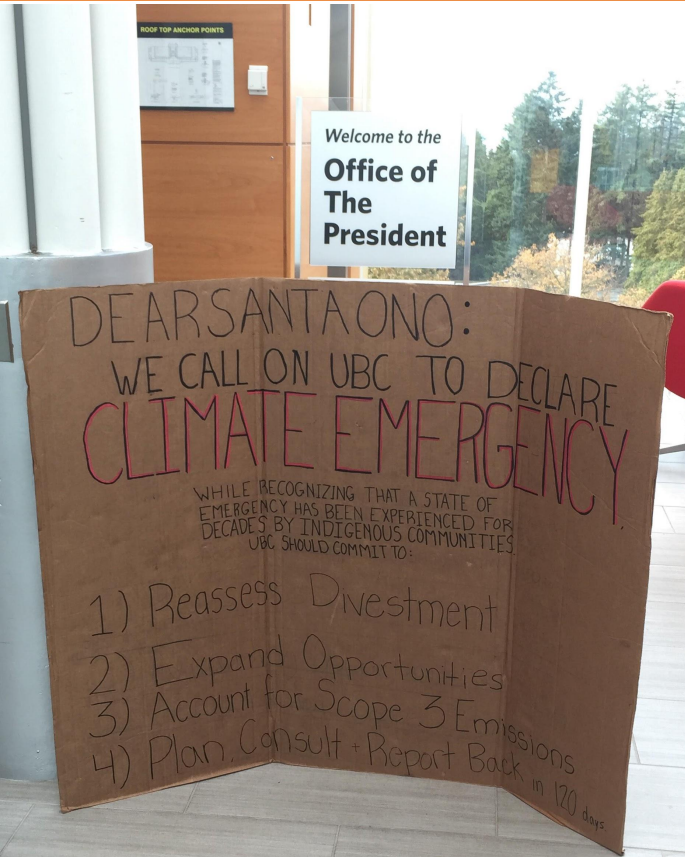 ROOF TOP ANCHOR POINTS
Welcome to the
Office of
The
President
DEAR SANTA ONO:
WE CALL ON UBC TO DECLARE
CLIMATE EMERGENCY,
WHILE RECOGNIZING THAT A STATE OF
EMERGENCY HAS BEEN EXPERIENCED FOR
DECADES BY INDIGENOUS COMMUNITIES
UBC SHOULD COMMIT TO:
1) Reassess Divestment
2) Expand Opportunities
3) Account for Scope 3 Emissions
4) Plan, Consult + Report Back in 120 days.